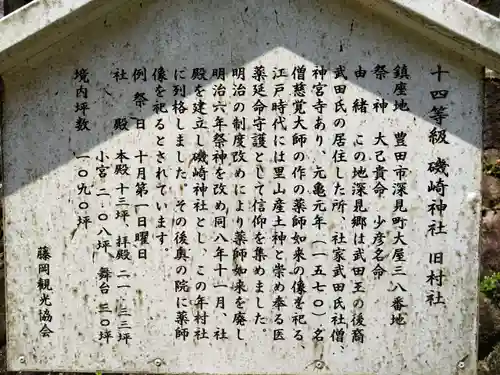 十四等級 磯崎神社 旧村社
鎮座地 豊田市深見町大屋三八番地
祭神 大己貴命 少彦名命
由緒 この地深見郷は武田王の後裔
武田氏の居住した所、社家武田氏社僧、
神宮寺あり、元亀元年(一五七〇)名
僧慈覚大師の作の薬師如来の像を祀る、
江戸時代には里山産土神と崇め奉る医
薬延命守護として信仰を集めました。
明治の制度改めにより薬師如来を廃し
明治六年祭神を改め同八年十一月、社
殿を建立し磯崎神社とし、この年村社
に列格しました。その後奥の院に薬師
像を祀るとされています。
例祭日 十月第一日曜日
社殿 本殿十三坪、拝殿二一.三三坪
小宮二.〇八坪、舞台三〇坪
境内坪数 一〇九〇坪
藤岡観光協会